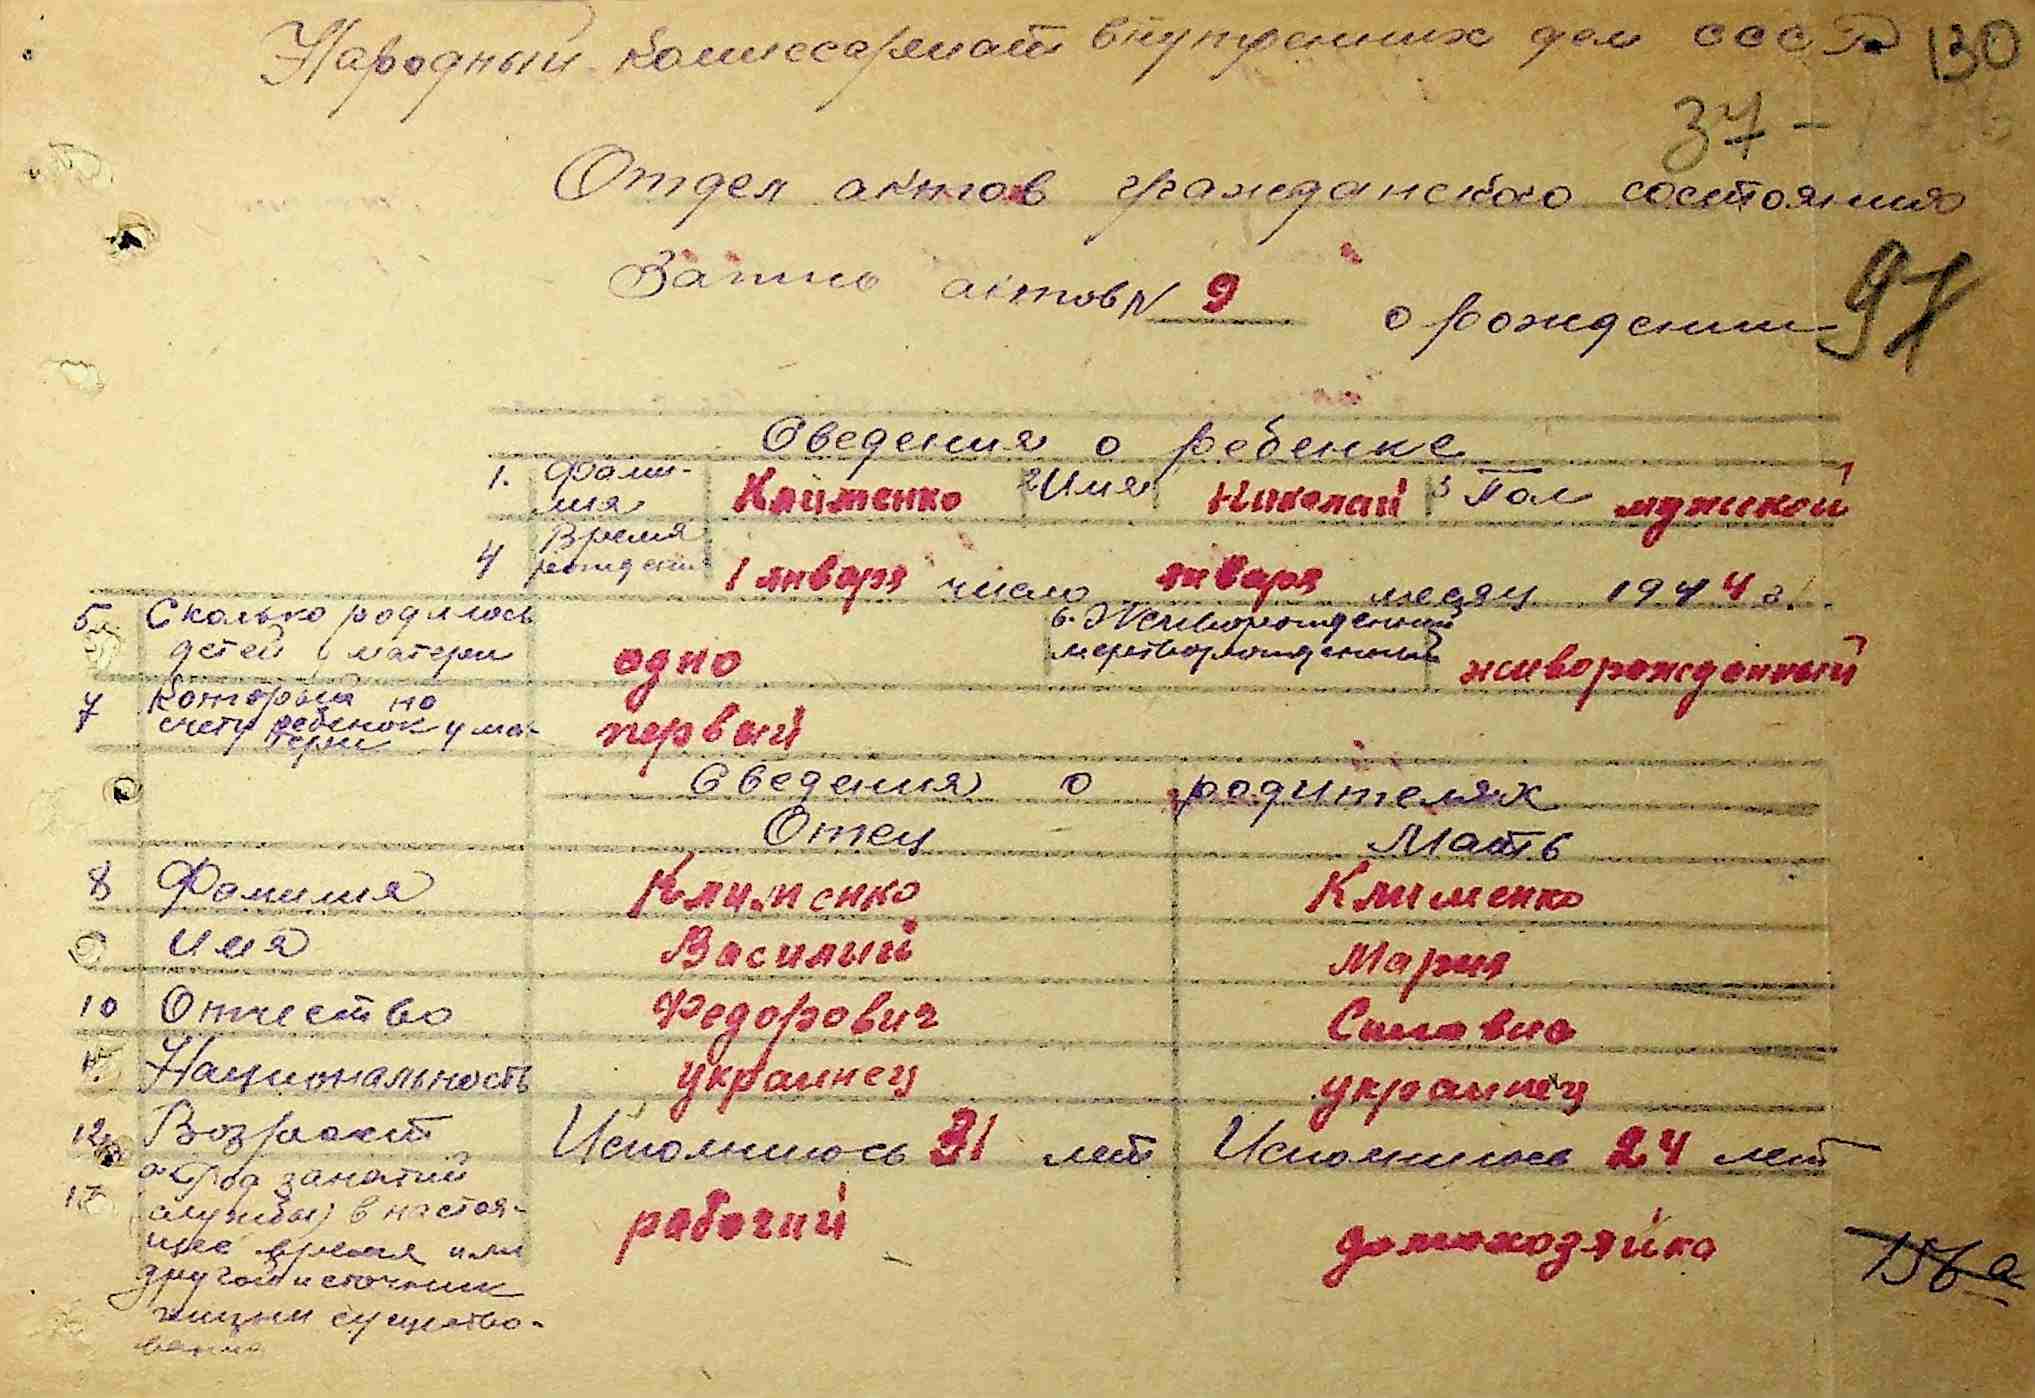 Народный комиссариат внутренних дел СССР 130
37 -
Отдел актов гражданского состояния
Запись актов N 9 о рождении 97
Сведения о ребенке
1. Фами-лия Клименко 2 Имя Николай 3 Пол мужской
4 Время рождения 1 января число января месяц 1944 г.
5. Сколько родилось детей у матери одно 6. Живорожденный мертворожденный живорожденный
7 Который по счету ребенок у ма-тери первый
Сведения о родителях
Отец Мать
8 Фамилия Клименко Клименко
9 Имя Василий Мария
10 Отчество Федорович Саввична
11. Национальность украинец украинец
12. Возраст Исполнилось 31 лет Исполнилось 24 лет
13 а) Род занятий
(службы) в настоя- рабочий домохозяйка
щее время или
другой источник
жизни существо-
вания
156а